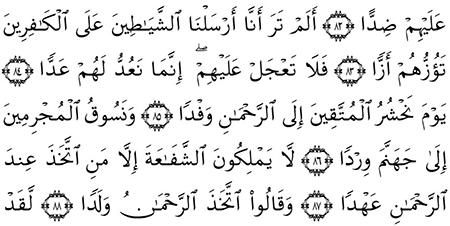 عَلَيْهِمْ ضِدًّا ﴿٨٢﴾ أَلَمْ تَرَ أَنَّا أَرْسَلْنَا ٱلشَّيَاطِينَ عَلَى ٱلْكَافِرِينَ
تَؤُزُّهُمْ أَزًّا ﴿٨٣﴾ فَلَا تَعْجَلْ عَلَيْهِمْ ۖ إِنَّمَا نَعُدُّ لَهُمْ عَدًّا ﴿٨٤﴾
يَوْمَ نَحْشُرُ ٱلْمُتَّقِينَ إِلَى ٱلرَّحْمَـٰنِ وَفْدًا ﴿٨٥﴾ وَنَسُوقُ ٱلْمُجْرِمِينَ
إِلَىٰ جَهَنَّمَ وِرْدًا ﴿٨٦﴾ لَا يَمْلِكُونَ ٱلشَّفَاعَةَ إِلَّا مَنِ ٱتَّخَذَ عِندَ
ٱلرَّحْمَـٰنِ عَهْدًا ﴿٨٧﴾ وَقَالُوا۟ ٱتَّخَذَ ٱلرَّحْمَـٰنُ وَلَدًا ﴿٨٨﴾ لَّقَدْ